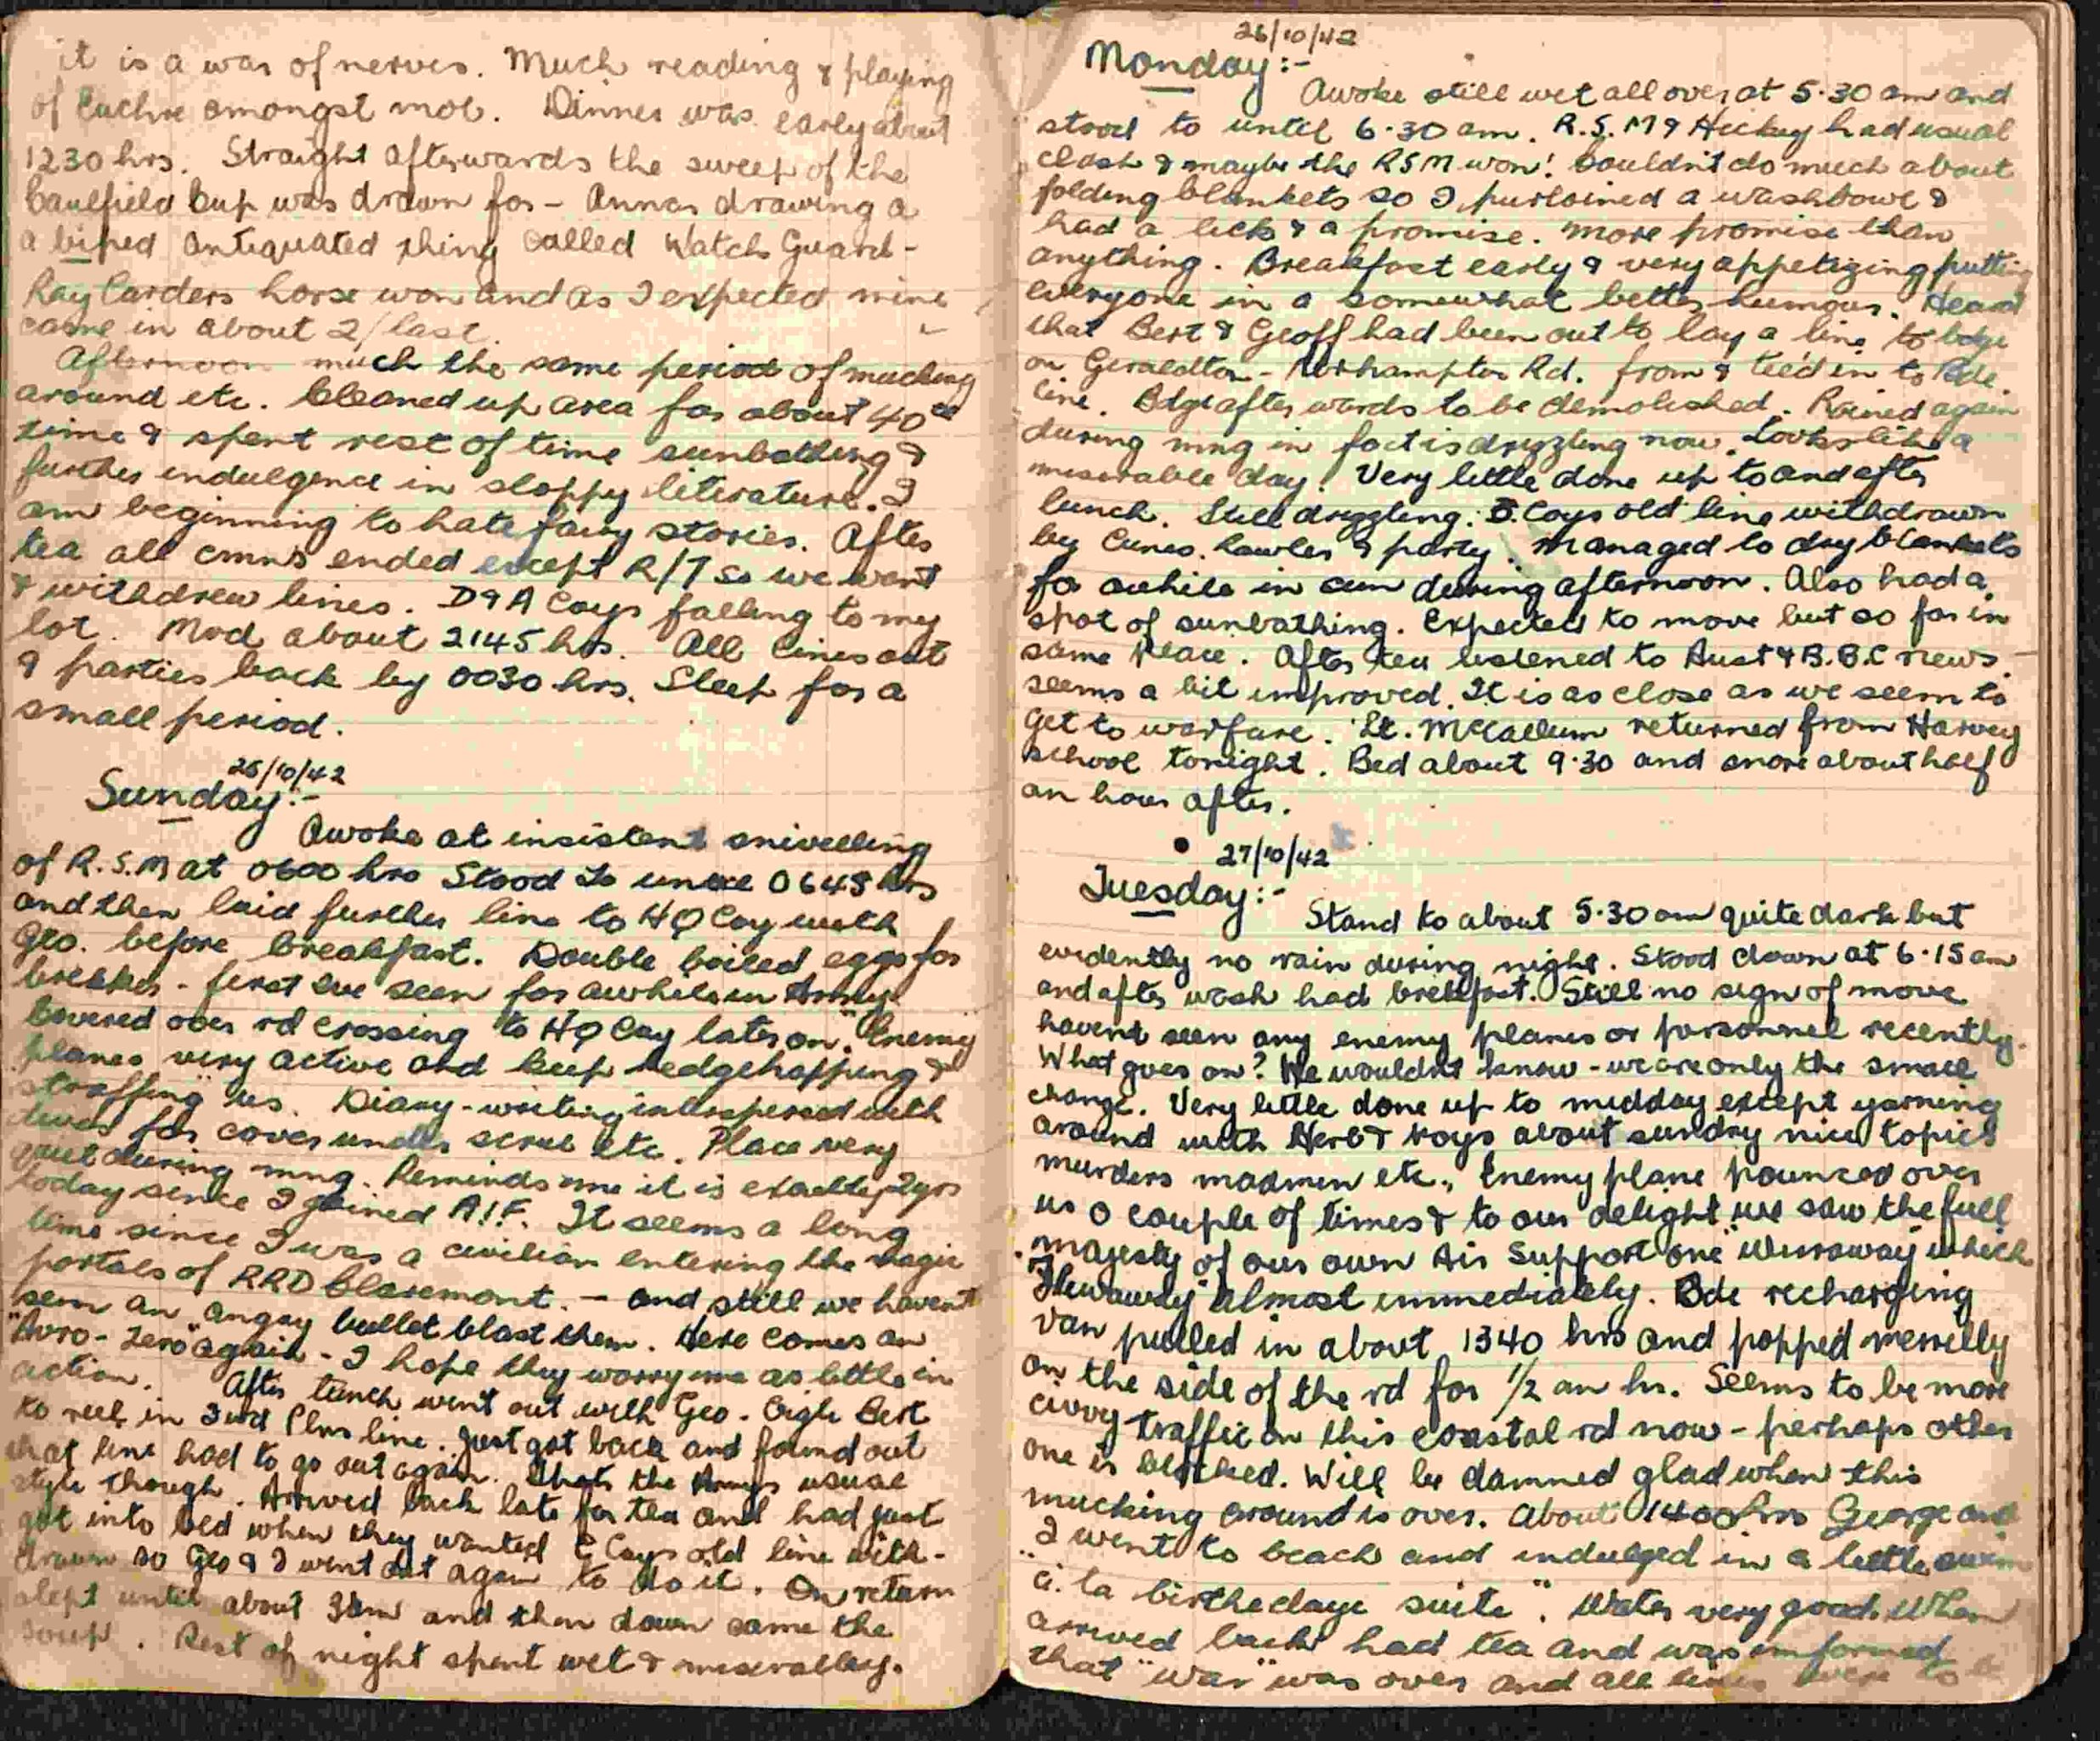 it is a war of nerves. Much reading & playing
of Euchre amongst mob. Dinner was early about
1230 hrs. Straight afterwards the sweep of the
Caulfield Cup was drawn for - Annas drawing a
a biped antiquated thing called Watch Guard -
Ray Carders horse won and as I expected mine
came in about 2/last.
Afternoon much the same period of mucking
around etc. Cleaned up area for about 40
time & spent rest of time sunbathing &
further indulgence in sloppy literature. I
am beginning to hate fairy stories. After
tea all cmns ended except R/T so we went
& withdrew lines. D & A Coys falling to my
lot. Mod about 2145 hrs. All lines out
& parties back by 0030 hrs. Sleep for a
small period.
25/10/42
Sunday:-
Awoke at insistent snivelling
of R.S.M at 0600 hrs Stood to until 0645 hrs
and then laid further line to HQ Coy with
Geo. before breakfast. Double boiled eggs for
brekker - first Ive seen for awhile in Army.
Covered over rd crossing to HQ Coy later on. "Enemy
planes very active and keep hedgehopping &
straffing" us. Diary-writing interspersed with
dives for cover under scrub etc. Place very
quiet during mng. Reminds me it is exactly 2yrs
today since I joined A.I.F. It seems a long
time since I was a civilian entering the magic
portals of RRD Claremont. - and still we havent
seen an angry bullet blast them. Here comes an
"Avro-Zero" again - I hope they worry me as little in
action. After lunch went out with Geo. Bert
to reel in 3rd line. Just got back and found out
that line had to go out again. Thats the Armys usual
style though. Arrived back late for tea and had just
got into bed when they wanted C Coys old line with-
drawn so Geo & I went out again to do it. On return
slept until about 3am and then down came the
soup. Rest of night spent wet & miserabley.
26/10/42
Monday:-
Awoke still wet all over at 5.30 am and
stood to until 6.30 am. R.S.M & Hickey had usual
clash & maybe the RSM won! Couldn't do much about
folding blankets so I purloined a washbowl &
had a lick & a promise. More promise than
anything. Breakfast early & very appetizing putting
everyone in a somewhat better humour. Heard
that Bert & Geoff had been out to lay a line to bdge
on Geraldton - Northampton Rd. from & tee'd in to Bde.
line. Bdge afterwards to be demolished. Rained again
during mng in fact is drizzling now. Looks like a
miserable day. Very little done up to and after
lunch. Still drizzling. B. Coys old line withdrawn
by Lawler & party. Managed to dry blankets
for awhile in sun during afternoon. Also had a
spot of sunbathing. Expected to move but so far in
same place. After tea listened to Aust & B.B.C news.-
seems a bit improved. It is as close as we seem to
get to warfare. Lt. McCallum returned from Harvey
school tonight. Bed about 9.30 and snore about half
an hour after.
27/10/42
Tuesday:-
Stand to about 5.30 am quite dark but
evidently no rain during night. Stood down at 6.15 am
and after wash had brekfast. Still no sign of move
havent seen any enemy planes or personnel recently.
What goes on? We wouldnt know - we are only the small
change. Very little done up to midday except yarning
around with Herb & boys about sundry nice topics
murders madmen etc. Enemy plane pounced over
us a couple of times & to our delight we saw the full
majesty of our own Air Support one "Wirraway" which
"flewaway" almost immediately. Bde recharging
van pulled in about 1340 hrs and popped merrelly
on the side of the rd for 1/2 an hr. Seems to be more
civvy traffic on this coastal rd now - perhaps other
one is blocked. Will be damned glad when this
mucking around is over. About 1400 hrs George and
I went to beach and indulged in a little swim
"a. la birthedaye suite". Water very good. When
arrived back had tea and was informed
that "war" was over and all lines were to